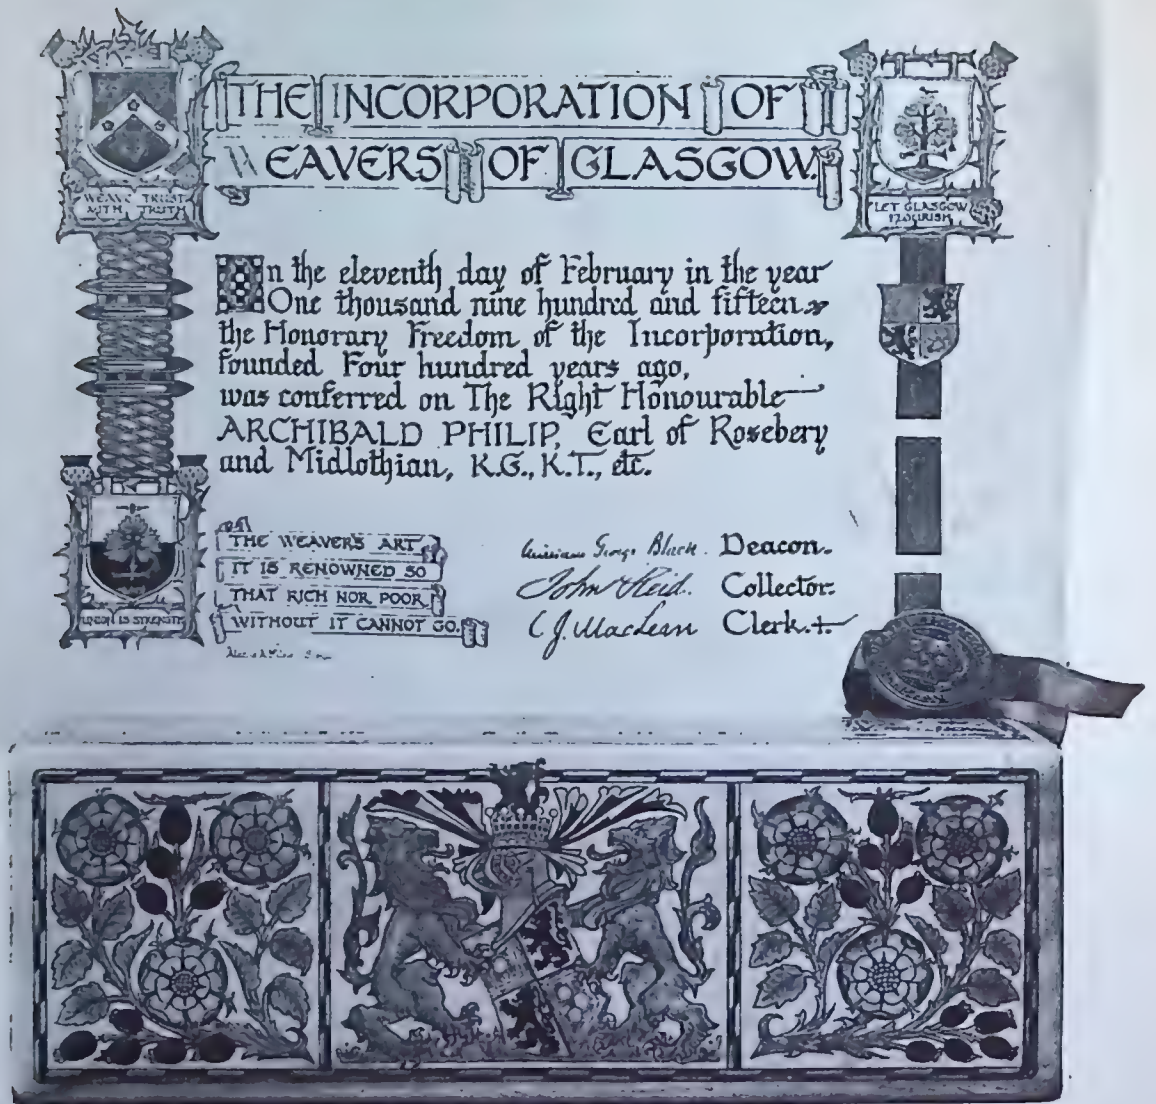 THE INCORPORATION OF
WEAVERS OF GLASGOW.
WEAVE TRUST
WITH TRUTH
LET GLASGOW
FLOURISH
On the eleventh day of February in the year
One thousand nine hundred and fifteen
the Honorary Freedom of the Incorporation,
founded Four hundred years ago,
was conferred on The Right Honourable
ARCHIBALD PHILIP, Earl of Rosebery
and Midlothian, K.G., K.T., etc.
UNION IS STRENGTH
THE WEAVER'S ART
IT IS RENOWNED SO
THAT RICH NOR POOR
WITHOUT IT CANNOT GO.
William George Black. Deacon.
John Reid. Collector.
C J. MacLean Clerk.